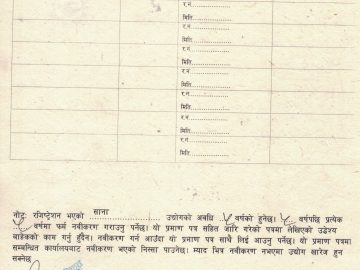 र.नं.
मिति
र.नं.
मिति
र.नं.
मिति
र.नं.
मिति
र.नं.
मिति
र.नं.
मिति
र.नं.
मिति
नोट: रजिष्ट्रेशन भएको साना उद्योगको अवधि ५ वर्षको हुनेछ। ५ वर्षपछि प्रत्येक
५ वर्षमा फर्म नवीकरण गराउनु पर्नेछ। यो प्रमाण पत्र सहित जारि गरेको पत्रमा लेखिएको उद्देश्य
बाहेकको काम गर्नु हुदैन। नवीकरण गर्न आउँदा यो प्रमाण पत्र साथै लिई आउनु पर्नेछ। यो प्रमाण पत्रमा
सम्बन्धित कार्यालयवाट नवीकरण भएको निस्सा पाउनेछ। म्याद भित्र नवीकरण नभएमा उद्योग खारेज हुन
सक्नेछ